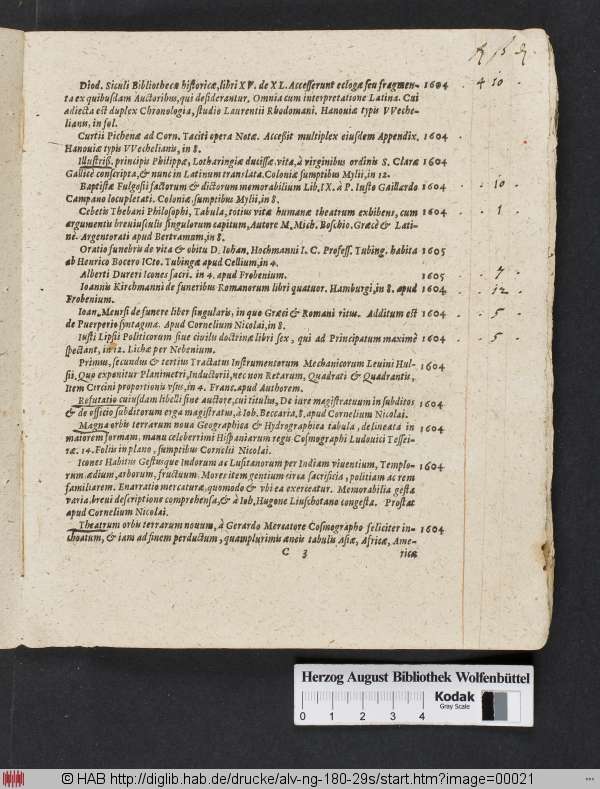 Diod. Siculi Bibliothecæ historicæ, libri XV. de XL. Accesserunt eclogæ seu fragmen- 1604 - 4 10 -
ta ex quibusdam Auctoribus, qui desiderantur, Omnia cum interpretatione Latina. Cui
adiecta est duplex Chronologia, studio Laurentii Rhodomani. Hanoviæ typis VVeche-
lianis, in fol.
Curtii Pichenæ ad Corn. Taciti opera Notæ. Accessit multiplex eiusdem Appendix. 1604
Hanoviæ typis VVechelianis, in 8.
Illustriss. principis Philippæ, Lotharingiæ ducissæ vita, à virginibus ordinis S. Claræ 1604
Gallicè conscripta, & nunc in Latinum translata. Coloniæ sumptibus Mylii, in 12.
Baptistæ Fulgosii factorum & dictorum memorabilium Lib. IX. à P. Iusto Gaillardo 1604 - 10 -
Campano locupletati. Coloniæ, sumptibus Mylii, in 8.
Cebetis Thebani Philosophi, Tabula, totius vitæ humanæ theatrum exhibens, cum 1604 - 1
argumentis breviusculis singulorum capitum, Autore M. Mich. Boschio. Græcè & Lati-
nè. Argentorati apud Bertramum, in 8.
Oratio funebris de vita & obitu D. Iohan. Hochmanni I. C. Profess. Tubing. habita 1605
ab Henrico Bocero ICto. Tubingæ apud Cellium, in 4.
Alberti Dureri Icones sacri. in 4. apud Frobenium. 1605 - 7 -
Ioannis Kirchmanni de funeribus Romanorum libri quatuor. Hamburgi, in 8. apud 1604 - 12 -
Frobenium.
Ioan. Meursi de funere liber singularis, in quo Græci & Romani ritus. Additum est 1604 - 5
de Puerperio syntagma. Apud Cornelium Nicolai, in 8.
Iusti Lipsii Politicorum sive civilis doctrinæ libri sex, qui ad Principatum maximè 1604 - 5
spectant, in 12. Lichæ per Nebenium.
Primus, secundus & tertius Tractatus Instrumentorum Mechanicorum Levini Hul- 1604
sii. Quo exponitur Planimetri, Inductorii, nec non Retarum, Quadrati & Quadrantis,
Item Circini proportionis vsus, in 4. Franc. apud Authorem.
Refutatio cuiusdam libelli sine auctore, cui titulus, De iure magistratuum in subditos 1604
& de officio subditorum erga magistratus, à Ioh. Beccaria, 8. apud Cornelium Nicolai.
Magna orbis terrarum nova Geographica & Hydrographica tabula, delineata in 1604
maiorem formam, manu celeberrimi Hispaniarum regis Cosmographi Ludovici Tessei-
ræ. 14. Foliis in plano, sumptibus Cornelii Nicolai.
Icones Habitus Gestusque Indorum ac Lusitanorum per Indiam viventium, Templo- 1604
rum ædium, arborum, fructuum. Mores item gentium circa sacrificia, politiam ac rem
familiarem. Enarratio mercaturæ, quomodo & vbi ea exerceatur. Memorabilia gesta
varia, brevi descriptione comprehensa, & à Ioh. Hugone Linschotano congesta. Prostat
apud Cornelium Nicolai.
Theatrum orbis terrarum novum, à Gerardo Mercatore Cosmographo feliciter in- 1604
choatum, & iam ad finem perductum, quamplurimis æneis tabulis Asiæ, Africæ, Ame-
C 3 ricæ
Herzog August Bibliothek Wolfenbüttel
0 1 2 3 4
Kodak
Gray Scale
© HAB http://diglib.hab.de/drucke/alv-ng-180-29s/start.htm?image=00021